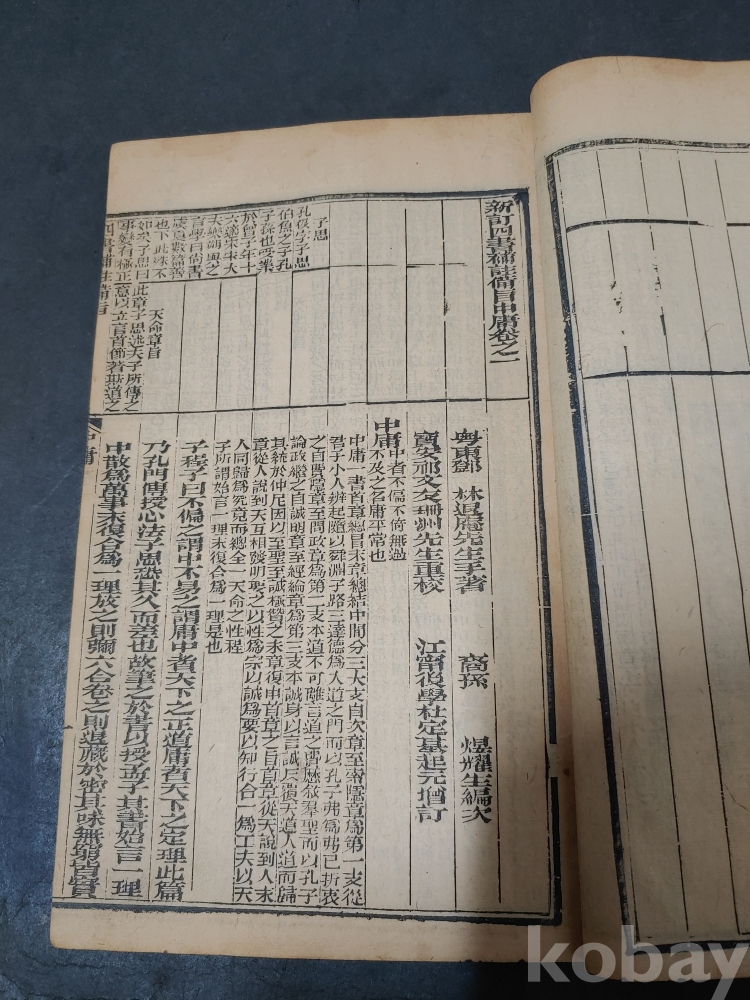 新訂四書補註備旨中庸卷之一
子思
孔伋字子思
伯魚之子孔
子孫也受業
於曾子年十
六適宋宋大
夫樂朔與之
言學曰尚書
虞夏數篇善
也下此殊不
如也子思曰
事變有極正
天命章旨
此章子思述夫子所傳之
意以立言首節著斯道之
粵東鄧 林退庵先生手著 裔孫 煜耀生編次
寶安祁文友珊洲先生重校 江甯後學杜定基起元增訂
中庸
中者不偏不倚無過
不及之名庸平常也
中庸一書首章總冒末章總結中間分三大支自次章至索隱章爲第一支從
君子小人辨起隨以舜淵子路三達德爲入道之門而以孔子弗爲弗已折衷
之自費隱章至問政章爲第二支本道不可離言道之費歷敘羣聖而以孔子
論政繼之自誠明章至經綸章爲第三支本誠身以言誠反覆天道人道而歸
其統於仲尼因以至聖至誠極贊之末章復申首章之旨首章從天說到人末
章從人說到天互相發明要之以性爲宗以誠爲要以知行合一爲工夫以天
人同歸爲究竟而總全一天命之性程
子所謂始言一理末復合爲一理是也
子程子曰不偏之謂中不易之謂庸中者天下之正道庸者天下之定理此篇
乃孔門傳授心法子思恐其久而差也故筆之於書以授孟子其書始言一理
中散爲萬事末復合爲一理放之則彌六合卷之則退藏於密其味無窮皆實
四書補註備旨
中庸
kobay